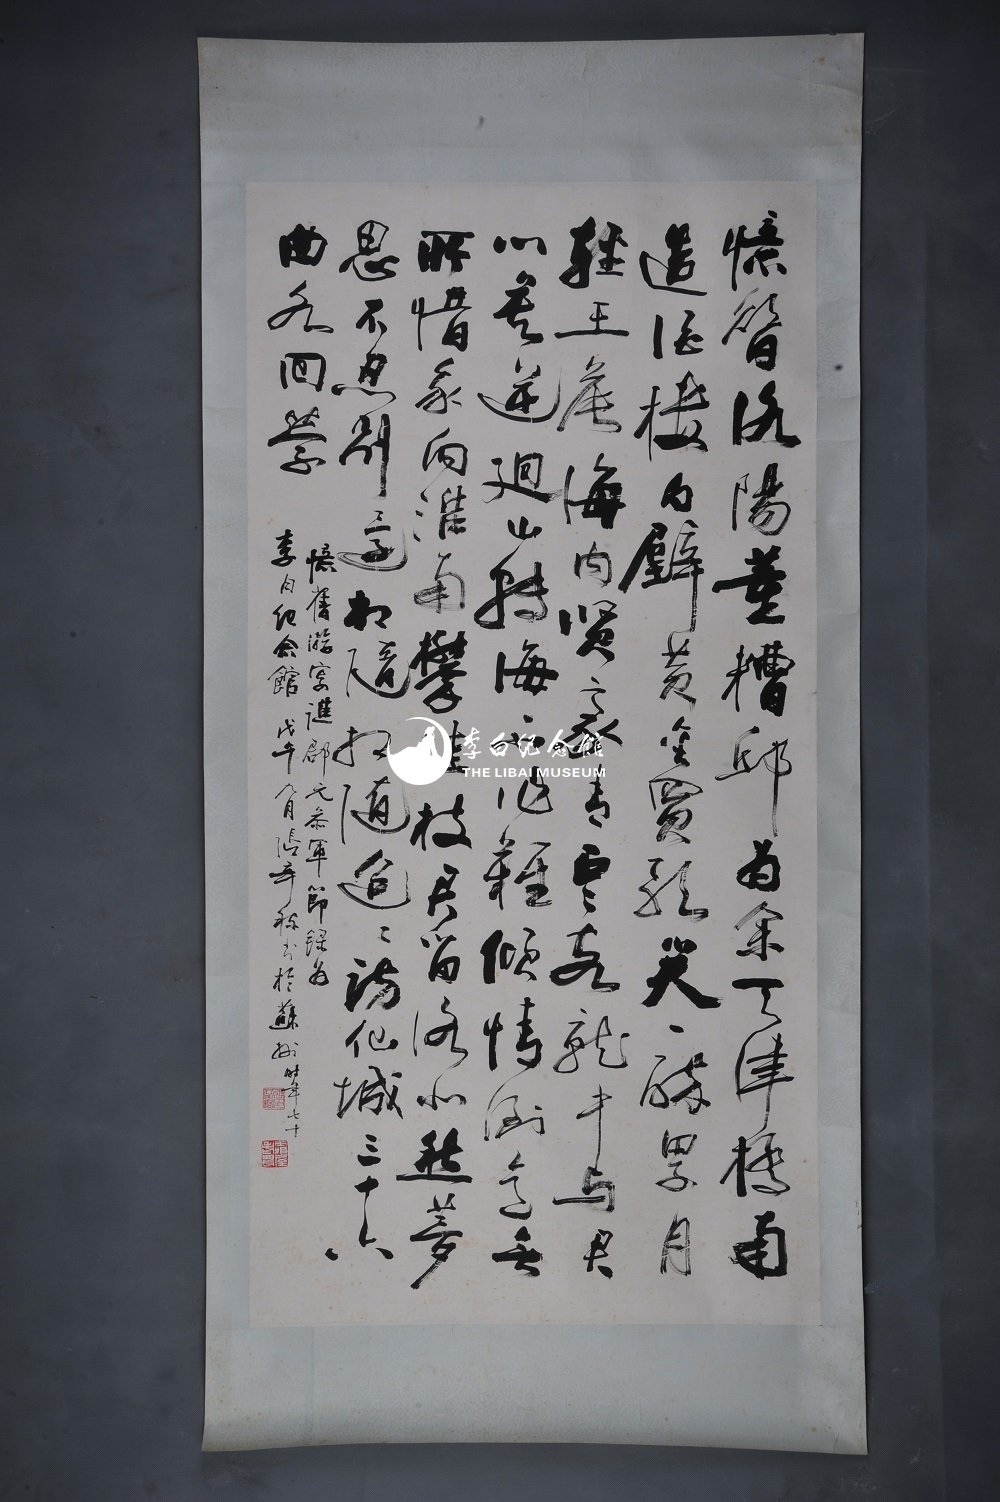 憶昔洛陽董糟邱為余天津橋南
造酒楼白璧黄金買歌笑一醉累月
輕王侯海内賢豪青雲客就中与君
心莫逆迴山轉海不作難傾情倒意無
所惜我向淮南攀桂枝君留洛北愁夢
思不忍别還相随相随迢迢訪仙城三十六
曲水回縈
憶舊游寄譙郡元參軍節録為
李白纪念館 戊午九月張辛稼書於蘇州時年七十
李白纪念館
THE LIBAI MUSEUM